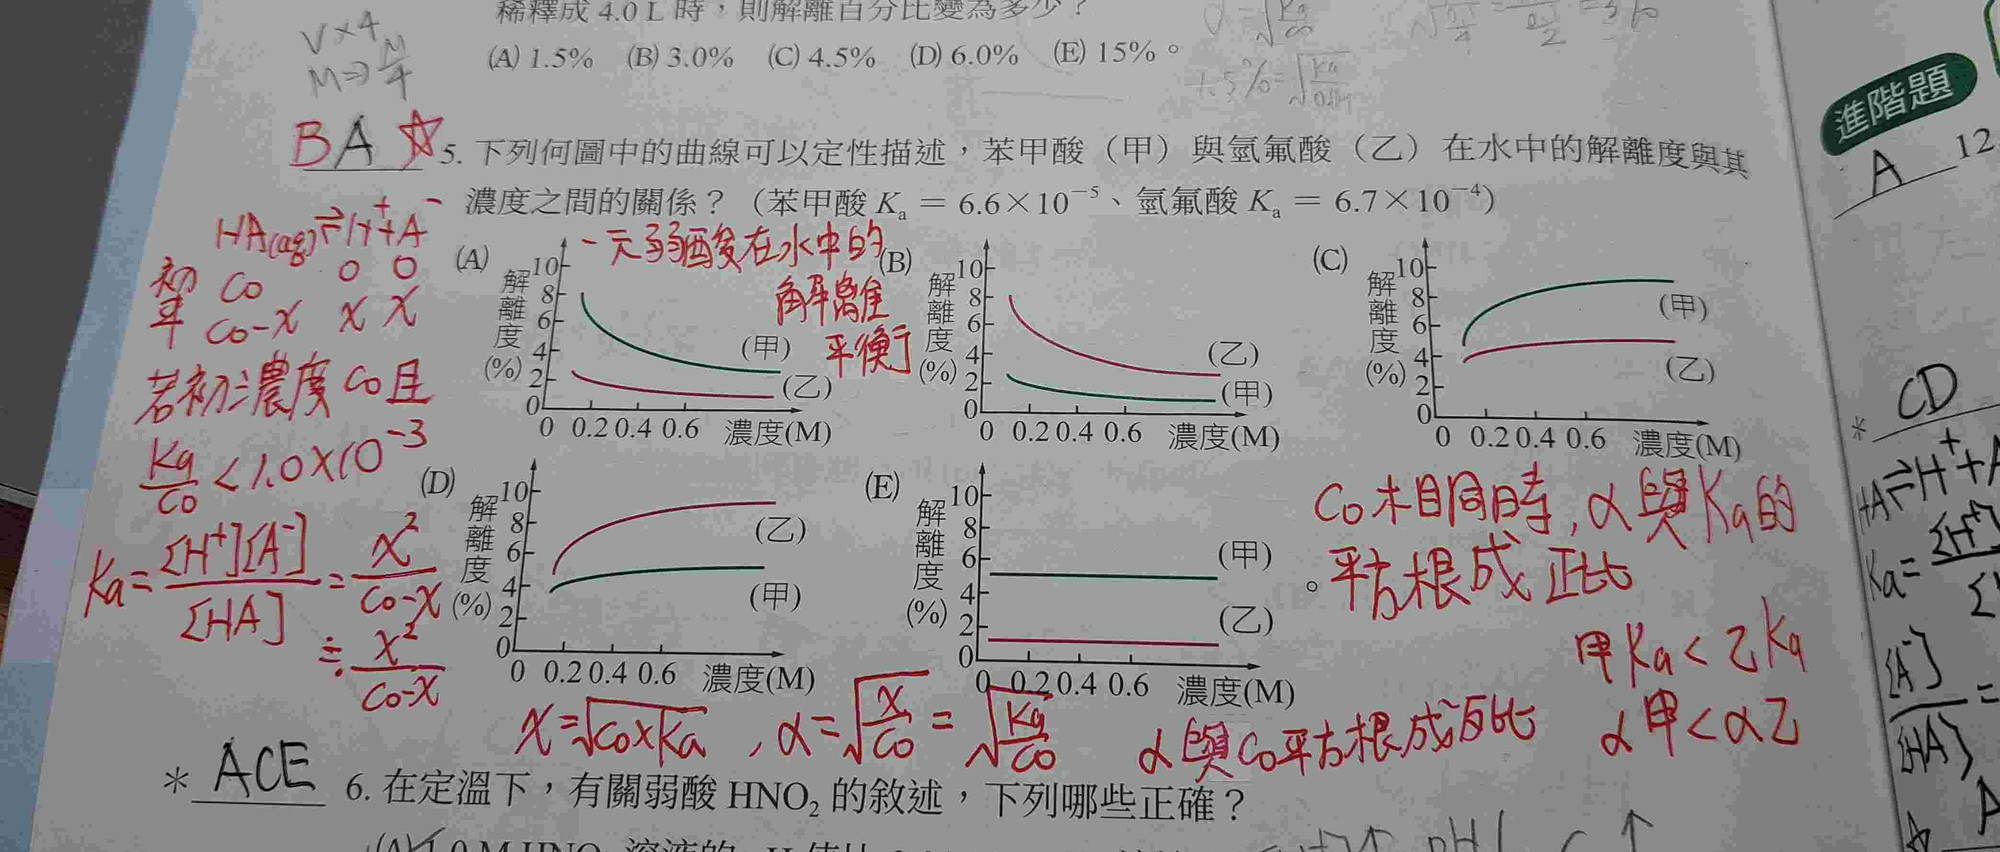 稀釋成 4.0 L 時，則解離百分比變為多少？
(A) 1.5% (B) 3.0% (C) 4.5% (D) 6.0% (E) 15%。
V×4
M⇒M/4
1.5%=
BA ☆ 5. 下列何圖中的曲線可以定性描述，苯甲酸（甲）與氫氟酸（乙）在水中的解離度與其
濃度之間的關係？（苯甲酸 Ka = 6.6×10⁻⁵、氫氟酸 Ka = 6.7×10⁻⁴）
HA(aq)⇌H⁺+A⁻
初 C0 0 0
平 C0-x x x
若初濃度 C0且
Ka/C0 < 1.0×10⁻³
Ka = [H⁺][A⁻]/[HA] = x²/(C0-x)
≒ x²/(C0-x)
一元弱酸在水中的
解離
平衡
(A)
解離度(%)
10
8
6
4
2
0
(甲)
(乙)
0 0.2 0.4 0.6 濃度(M)
(B)
解離度(%)
10
8
6
4
2
0
(乙)
(甲)
0 0.2 0.4 0.6 濃度(M)
(C)
解離度(%)
10
8
6
4
2
0
(甲)
(乙)
0 0.2 0.4 0.6 濃度(M)
(D)
解離度(%)
10
8
6
4
2
0
(乙)
(甲)
0 0.2 0.4 0.6 濃度(M)
(E)
解離度(%)
10
8
6
4
2
0
(甲)
(乙)
0 0.2 0.4 0.6 濃度(M)
C0相同時，α與Ka的
平方根成正比。
甲Ka < 乙Ka
α甲 < α乙
x=√(C0×Ka) , α=√(x/C0) = √(Ka/C0) α與C0平方根成反比
* ACE 6. 在定溫下，有關弱酸 HNO₂ 的敘述，下列哪些正確？
進階題
A 12.
* CD
HA⇌H⁺+A
Ka= [H⁺]
[A⁻]/[HA] =
☆ A